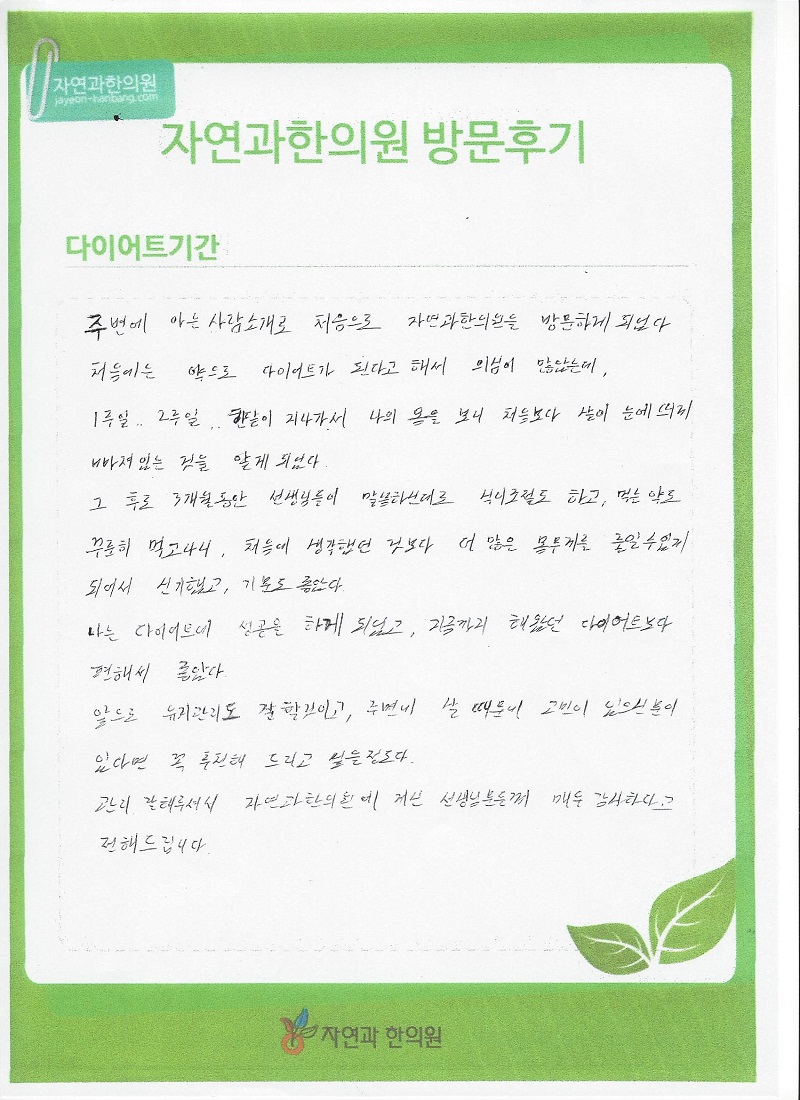 자연과한의원
jayeon-hanbang.com
자연과한의원 방문후기
다이어트기간
주변에 아는 사람소개로 처음으로 자연과한의원을 방문하게 되었다
처음에는 약으로 다이어트가 된다고 해서 의심이 많았는데,
1주일.. 2주일.. 한달이 지나가서 나의 몸을 보니 처음보다 살이 눈에 띄게
빠져있는 것을 알게 되었다.
그 후로 3개월동안 선생님들이 말씀하신대로 식이조절도 하고, 먹는 약도
꾸준히 먹고나니, 처음에 생각했던 것보다 더 많은 몸무게를 줄일수있게
되어서 신기했고, 기분도 좋았다
나는 다이어트에 성공을 하게 되었고, 지금까지 해왔던 다이어트보다
편해서 좋았다.
앞으로 유지관리도 잘 할것이고, 주변에 살 때문에 고민이 있으신분이
있다면 꼭 추천해 드리고 싶을정도다.
관리 잘해주셔서 자연과한의원에 계신 선생님분들께 매우 감사하다고
전해드립니다.
자연과 한의원